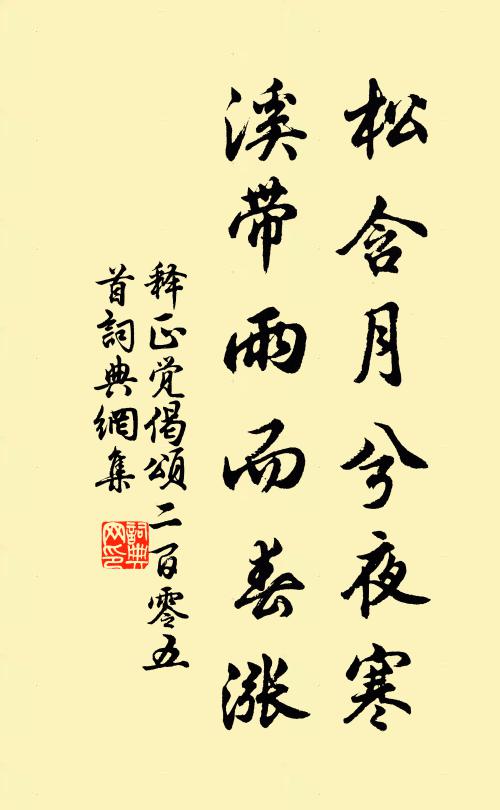 松含月兮夜寒
溪带雨而春涨
释正觉偈颂二百零五
首詞典網集
詞典
网印